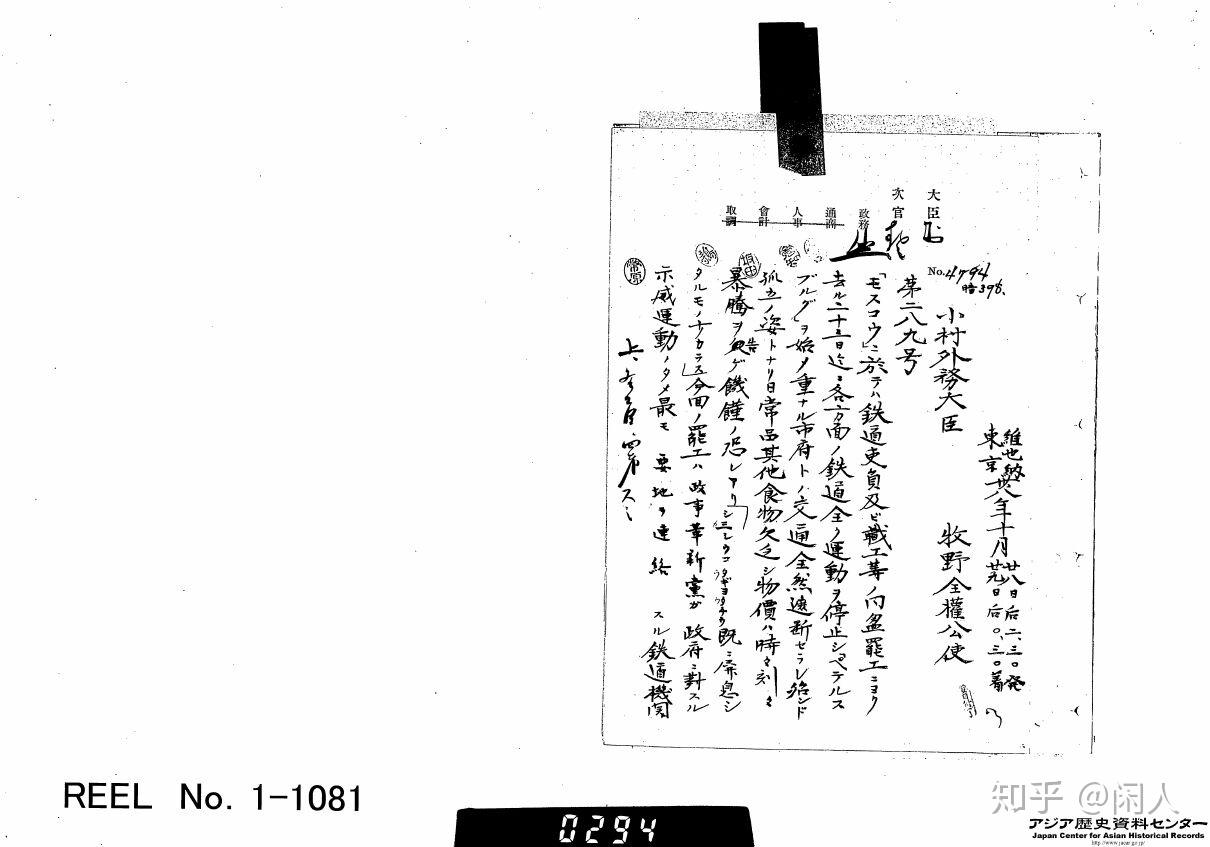 大臣
次官
政務
通商
人事
會計
取調
No. 4794
暗396.
維也納 卅八年十月廿八日后二、三〇発
東京 廿九日后〇、三〇着
小村外務大臣
牧野全權公使
第二八九号
「モスコウ」ニ於テハ鉄道吏員及ビ職工等ノ同盟罷工ニヨリ
去ル二十五日迄ニ各方面ノ鉄道全ク運動ヲ停止シペテルス
ブルグヲ始メ重ナル市府トノ交通全然遮断セラレ殆ンド
孤立ノ姿トナリ日常品其他食物欠乏シ物價ハ時々刻々
暴騰ヲ告ゲ饑饉ノ恐レアリ
既ニ
タルモノ ナカラス 今回ノ罷工ハ政事革新黨ガ政府ニ對スル
示威運動ノタメ最モ要地ヲ連絡スル鉄道機関
幣原
REEL No. 1-1081
0294
知乎 @闲人
アジア歴史資料センター
Japan Center for Asian Historical Records
http://www.jacar.go.jp/